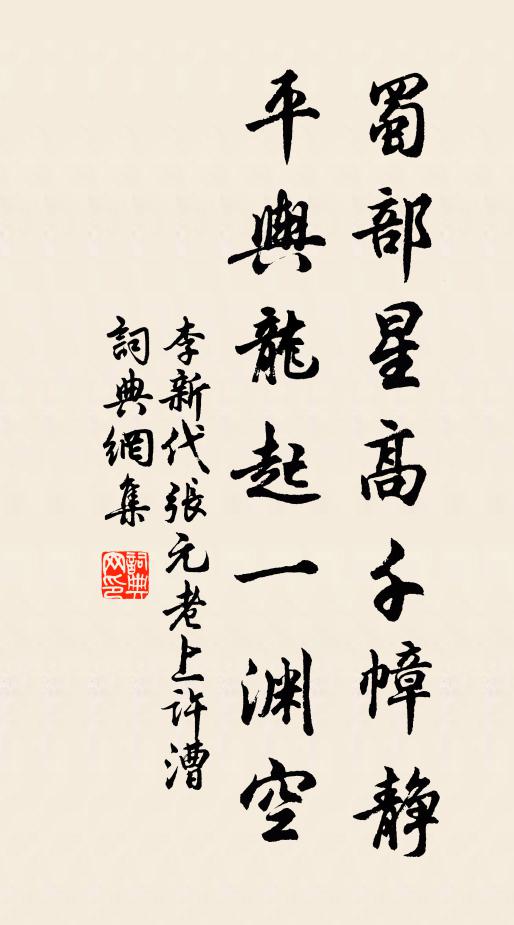 蜀部星高千幛静
平輿龍起一渊空
李新代張元老上许漕
詞典網集
詞典网印